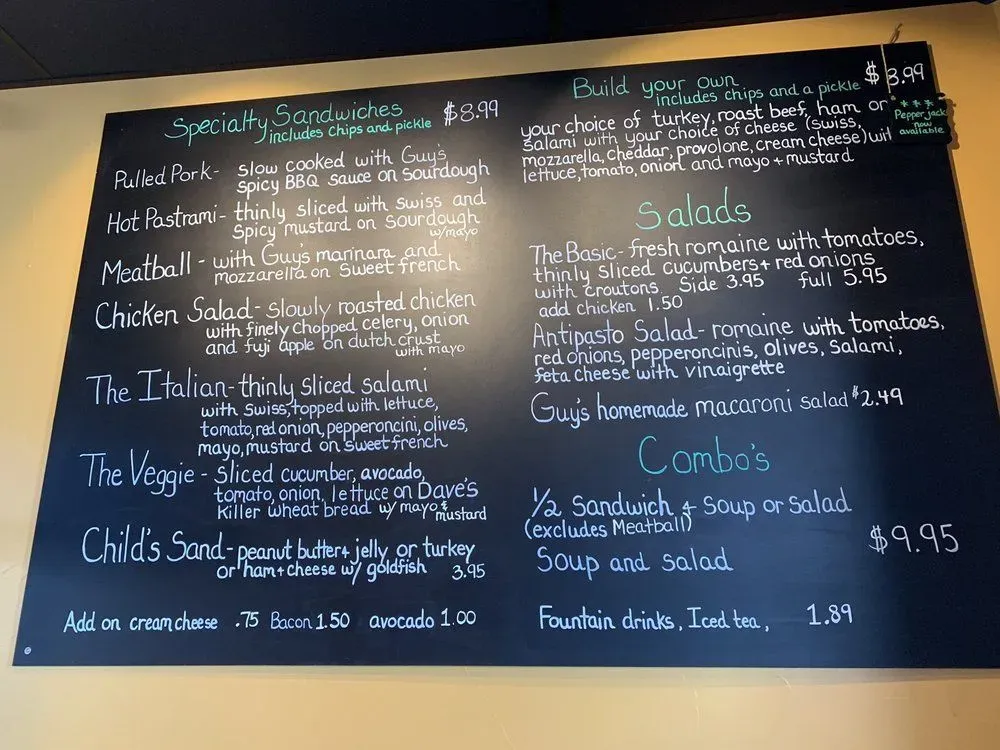 Specialty Sandwiches $8.99
includes chips and pickle
Pulled Pork- slow cooked with Guy's
spicy BBQ sauce on sourdough
Hot Pastrami- thinly sliced with swiss and
spicy mustard on sourdough
w/mayo
Meatball- with Guy's marinara and
mozzarella on sweet french
Chicken Salad- slowly roasted chicken
with finely chopped celery, onion
and fuji apple on dutch crust
with mayo
The Italian- thinly sliced salami
with swiss, topped with lettuce,
tomato, red onion, pepperoncini, olives,
mayo, mustard on sweet french
The Veggie- sliced cucumber, avocado,
tomato, onion, lettuce on Dave's
killer wheat bread w/ mayo &
mustard
Child's Sand- peanut butter + jelly or turkey
or ham + cheese w/ goldfish 3.95
Add on cream cheese .75 Bacon 1.50 avocado 1.00
Build your own $ 8.99
includes chips and a pickle
your choice of turkey, roast beef, ham or
salami with your choice of cheese (swiss,
mozzarella, cheddar, provolone, cream cheese) wit
lettuce, tomato, onion and mayo + mustard
***
Pepper jack
now
available
Salads
The Basic- fresh romaine with tomatoes,
thinly sliced cucumbers + red onions
with croutons. Side 3.95 full 5.95
add chicken 1.50
Antipasto Salad- romaine with tomatoes,
red onions, pepperoncinis, olives, salami,
feta cheese with vinaigrette
Guy's homemade macaroni salad $2.49
Combo's
1/2 Sandwich + Soup or salad
(excludes Meatball)
$9.95
Soup and salad
Fountain drinks, Iced tea, 1.89